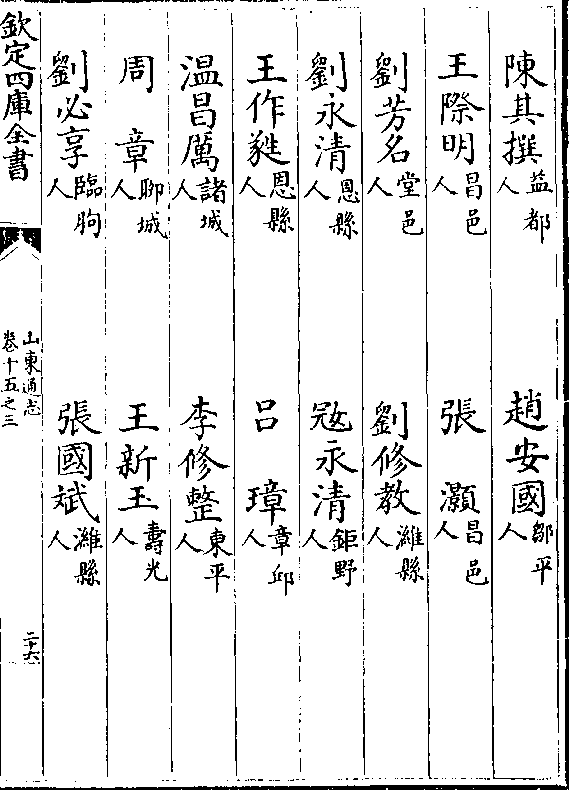 陳其撰益都人　趙安國鄒平人
王際明昌邑人　張　灝昌邑人
劉芳名堂邑人　劉修教濰縣人
劉永清恩縣人　寇永清鉅野人
王作難恩縣人　呂　璋章邱人
温昌厲諸城人　李修整東平人
周　章聊城人　王新玉壽光人
劉必享臨朐人　張國斌濰縣人
欽定四庫全書　山東通志卷十五之三　二十六